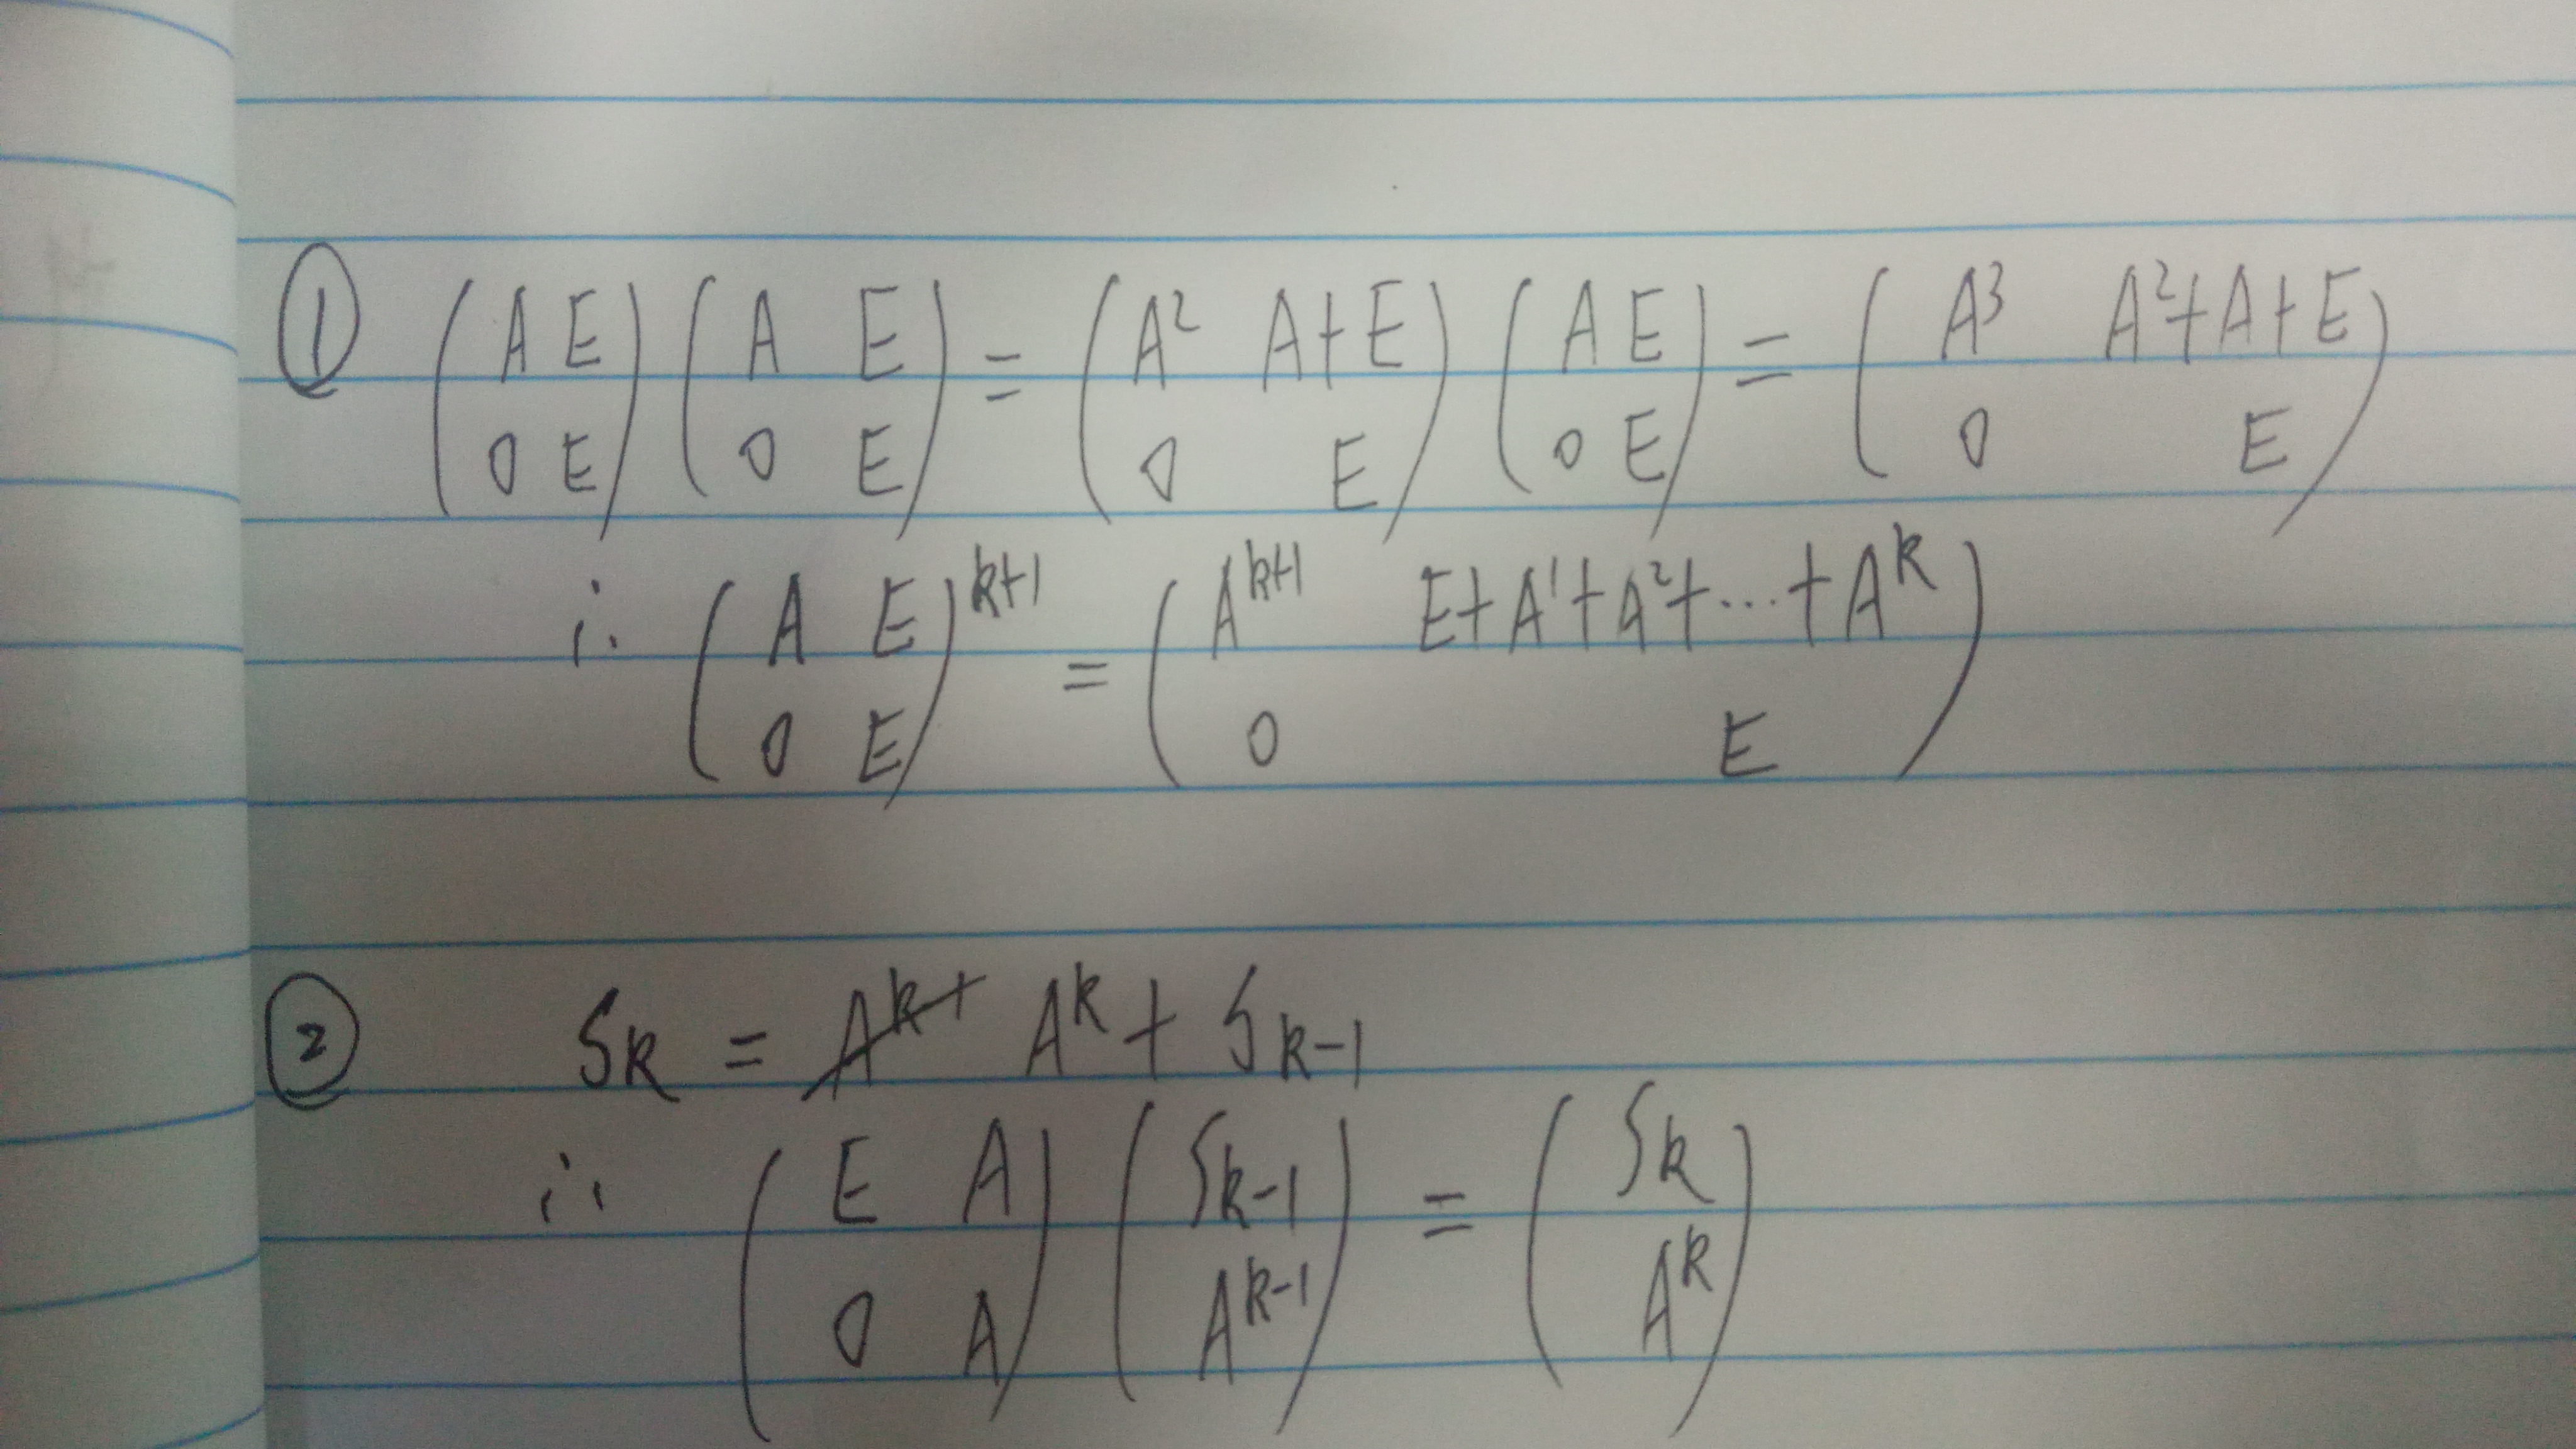 ① (A E; 0 E) (A E; 0 E) = (A² A+E; 0 E) (A E; 0 E) = (A³ A²+A+E; 0 E)
∴ (A E; 0 E)^{k+1} = (A^{k+1} E+A¹+A²+⋯+A^k; 0 E)
② S_k = ~~A^{k+}~~ A^k + S_{k-1}
∴ (E A; 0 A) (S_{k-1}; A^{k-1}) = (S_k; A^k)